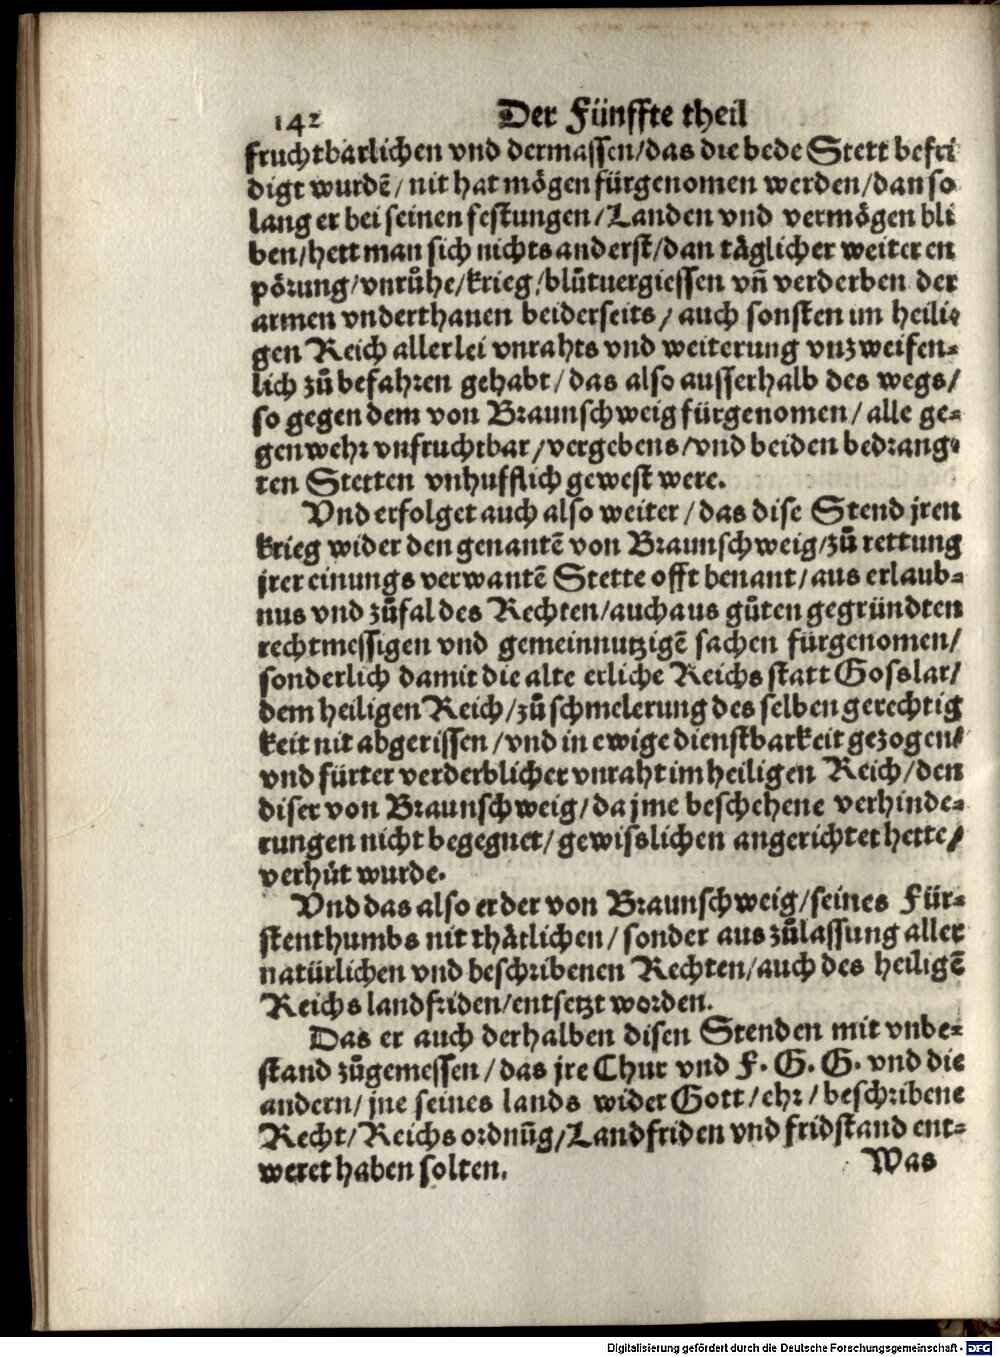 142 Der Fünffte theil
fruchtbarlichen vnd dermassen/das die bede Stett befri
digt wurdē/nit hat mögen fürgenomen werden/dan so
lang er bei seinen festungen/Landen vnd vermögen bli
ben/hett man sich nichts anderst/dan täglicher weiter en
pörung/vnrůhe/krieg/blůtuergiessen vñ verderben der
armen vnderthanen beiderseits/auch sonsten im heili⸗
gen Reich allerlei vnrahts vnd weiterung vnzweifen⸗
lich zů befahren gehabt/das also ausserhalb des wegs/
so gegen dem von Braunschweig fürgenomen/alle ge⸗
genwehr vnfruchtbar/vergebens/vnd beiden bedrang⸗
ten Stetten vnhufflich gewest were.
Vnd erfolget auch also weiter/das dise Stend jren
krieg wider den genantē von Braunschweig/zů rettung
jrer einungs verwantē Stette offt benant/aus erlaub⸗
nus vnd zůfal des Rechten/auch aus gůten gegründten
rechtmessigen vnd gemeinnutzigē sachen fürgenomen/
sonderlich damit die alte erliche Reichs statt Gosslar/
dem heiligen Reich/zů schmelerung des selben gerechtig
keit nit abgerissen/vnd in ewige dienstbarkeit gezogen/
vnd fürter verderblicher vnraht im heiligen Reich/den
diser von Braunschweig/da jme beschehene verhinde⸗
rungen nicht begegnet/gewisslichen angerichtet hette/
verhüt wurde.
Vnd das also er der von Braunschweig/seines Für⸗
stenthumbs nit thätlichen/sonder aus zůlassung aller
natürlichen vnd beschribenen Rechten/auch des heiligē
Reichs landfriden/entsetzt worden.
Das er auch derhalben disen Stenden mit vnbe⸗
stand zůgemessen/das jre Chur vnd F. G. G. vnd die
andern/jne seines lands wider Gott/ehr/beschribene
Recht/Reichs ordnūg/Landfriden vnd fridstand ent⸗
weret haben solten. Was
Digitalisierung gefördert durch die Deutsche Forschungsgemeinschaft - DFG